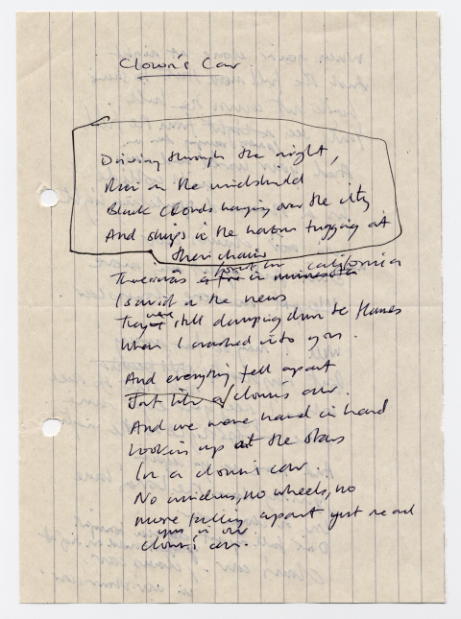 Clown's Car
Driving through the night,
Rain on the windshield
Black clouds hanging over the city
And ships in the harbour tugging at
their chains
There was a fire in minnesota
in california
I saw it on the news
They were still damping down the flames
When I crashed into you.
And everything fell apart
Just like a clown's car.
And we were hand in hand
Looking up at the stars
In a clown's car
No windows, no wheels, no
more falling apart just me and
you in our
clown's car.